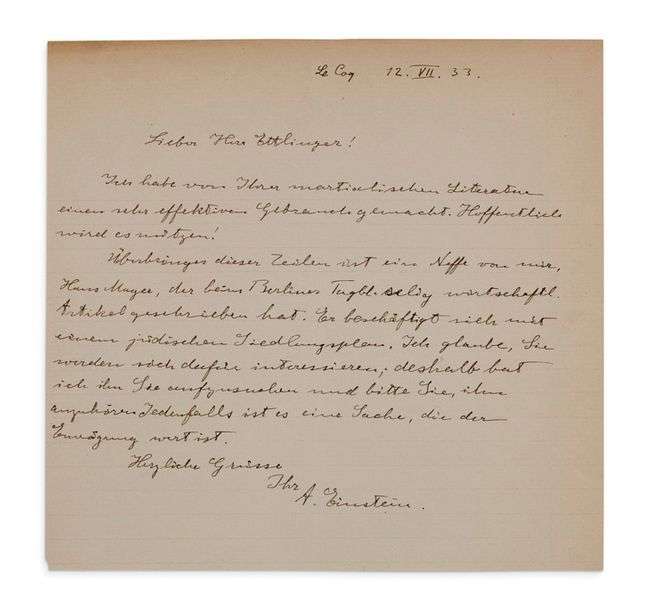 Le Coq 12. VII. 33.
Lieber Herr Ettlinger!
Ich habe von Ihrer martialischen Literatur
einen sehr effektiven Gebrauch gemacht. Hoffentlich
wird es nützen!
Überbringer dieser Zeilen ist ein Neffe von mir,
Hans Mayer, der beim Berliner Tagbl. selig wirtschaftl.
Artikel geschrieben hat. Er beschäftigt sich mit
einem jüdischen Siedlungsplan. Ich glaube, Sie
werden sich dafür interessieren; deshalb bat
ich ihn Sie aufzusuchen und bitte Sie, ihn
anzuhören. Jedenfalls ist es eine Sache, die der
Erwägung wert ist.
Herzliche Grüsse
Ihr
A. Einstein.